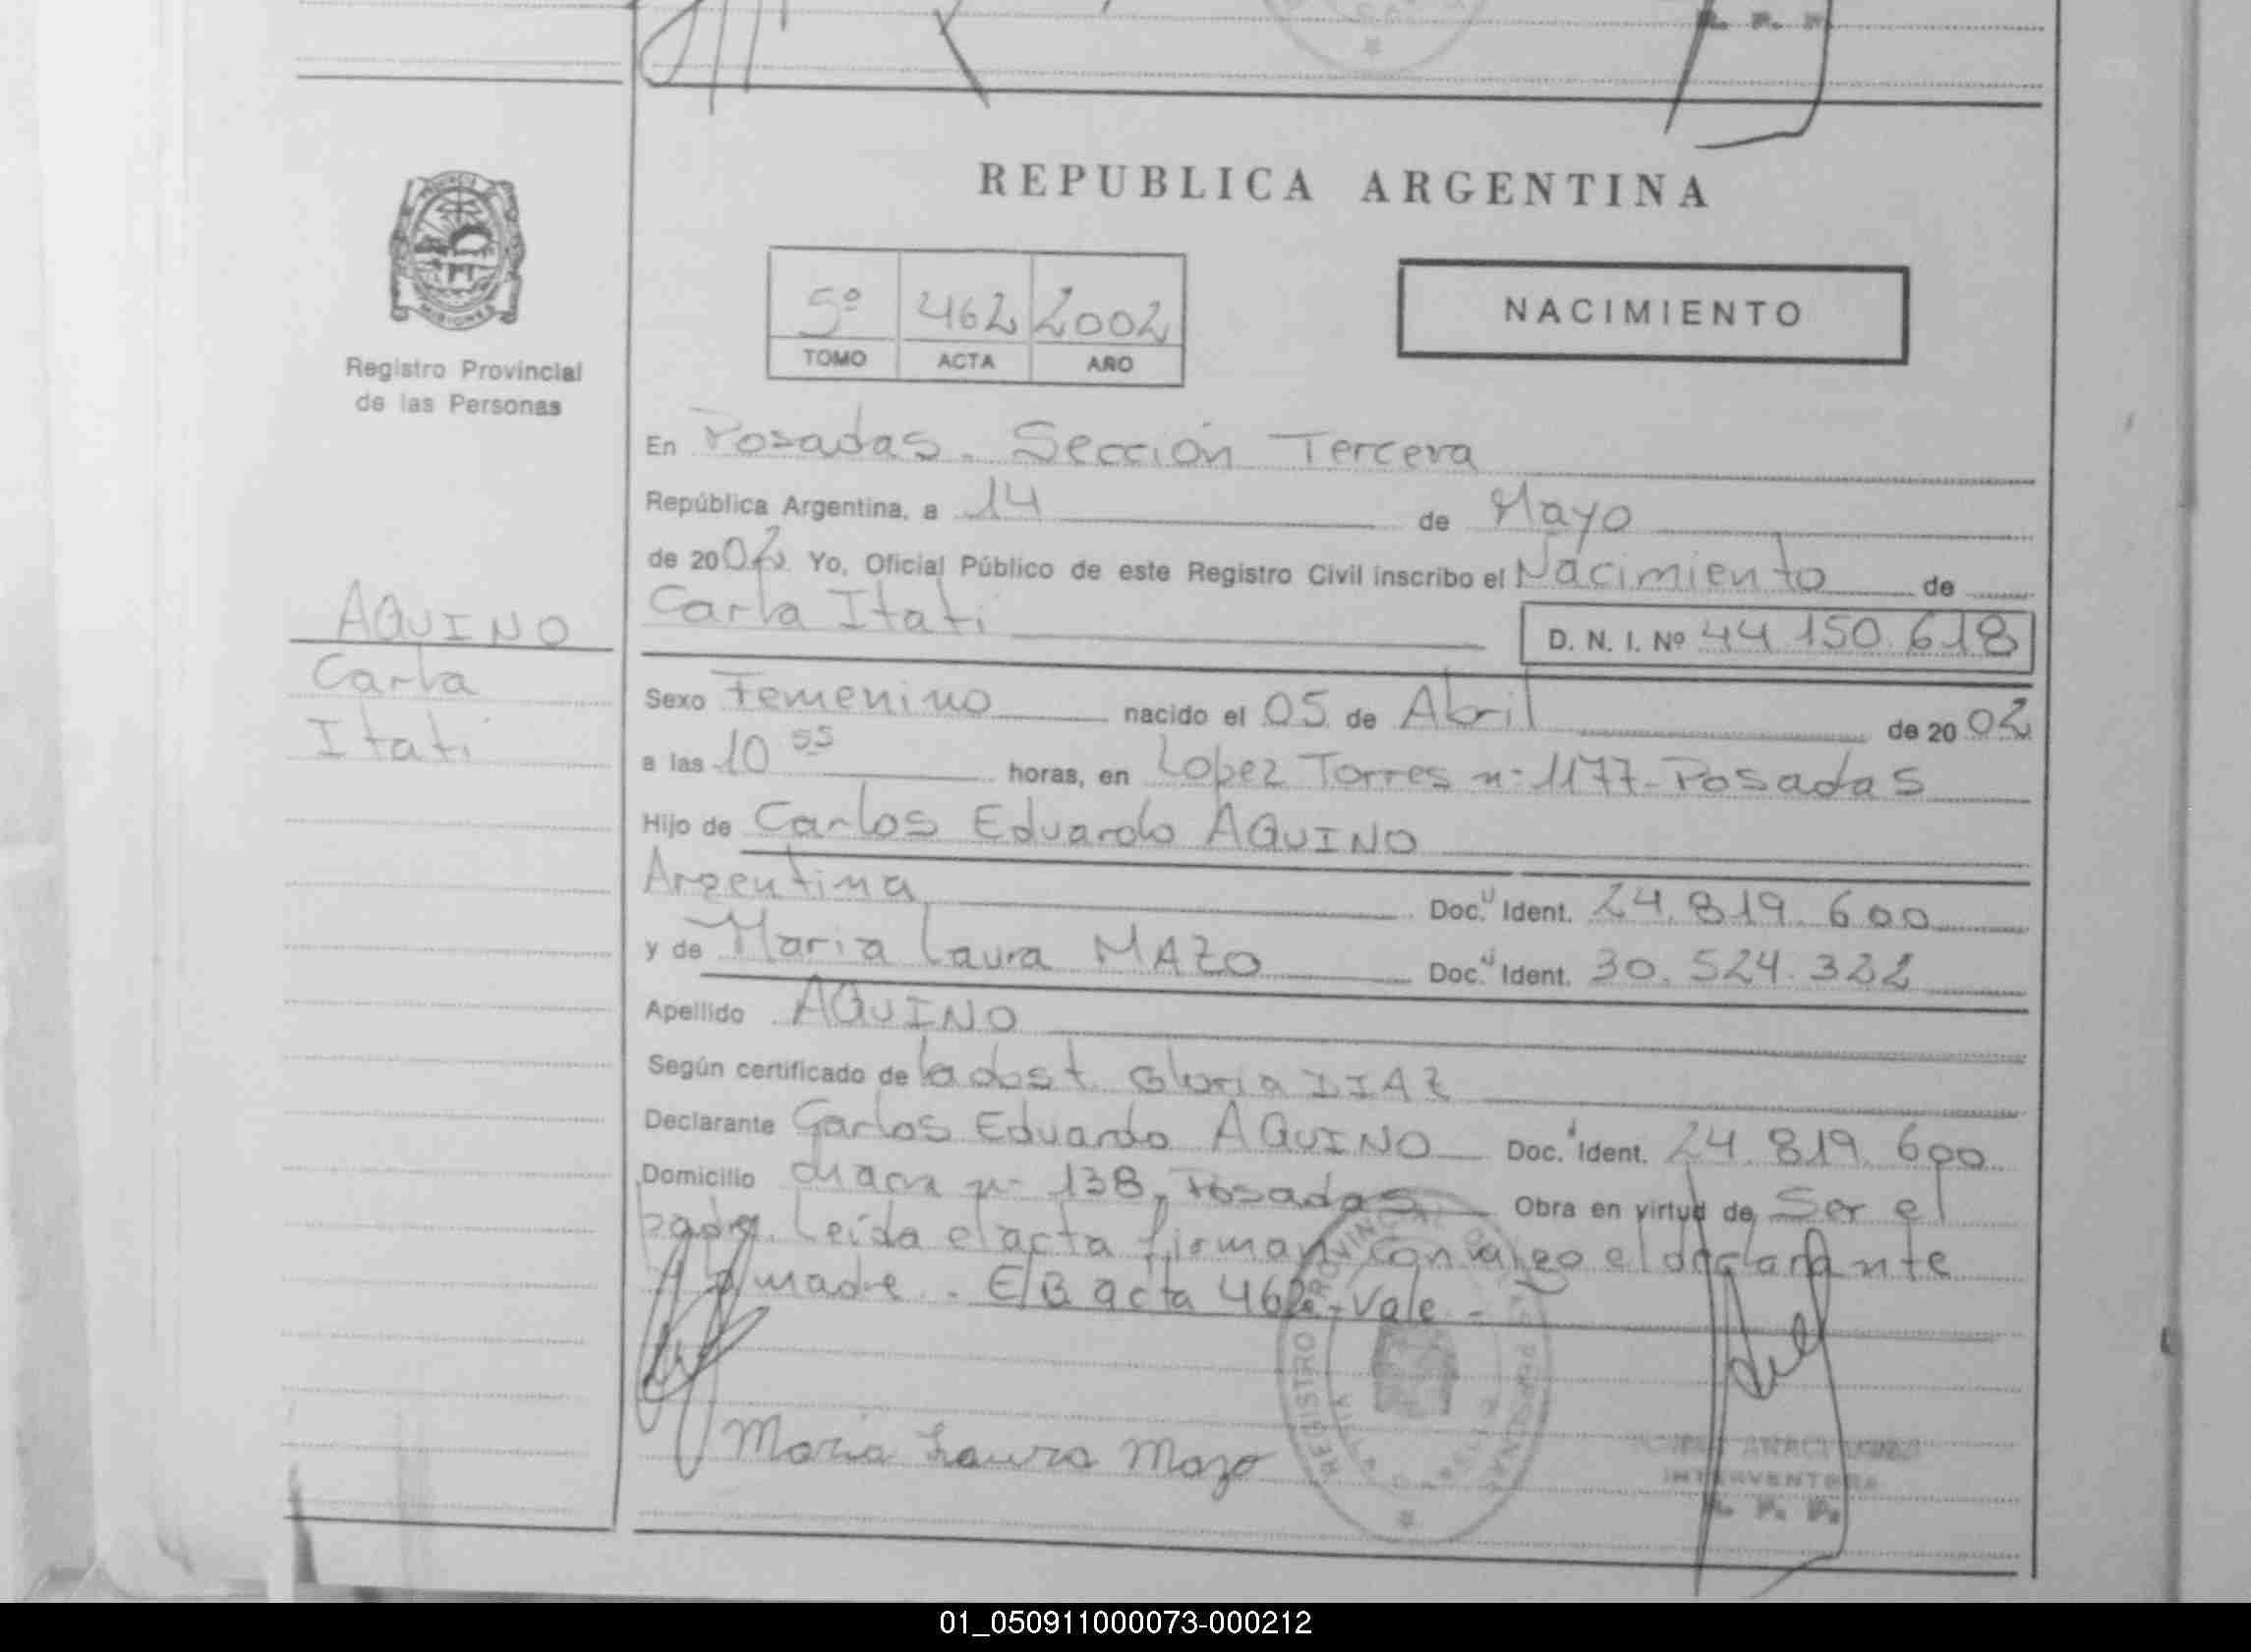 REPUBLICA ARGENTINA
5º 462 2002
TOMO ACTA AÑO
NACIMIENTO
MISIONES
Registro Provincial
de las Personas
AQUINO
Carla
Itati
En Posadas. Sección Tercera
República Argentina, a 14 de Mayo
de 2002 Yo, Oficial Público de este Registro Civil inscribo el Nacimiento de
Carla Itati D. N. I. Nº 44.150.618
Sexo Femenino nacido el 05 de Abril de 2002
a las 10 55 horas, en Lopez Torres nº 1177-Posadas
Hijo de Carlos Eduardo AQUINO
Argentina Doc. Ident. 24.819.600
y de Maria Laura MAZO Doc. Ident. 30.524.322
Apellido AQUINO
Según certificado de la obst. Gloria DIAZ
Declarante Carlos Eduardo AQUINO Doc. Ident. 24.819.600
Domicilio chacra nº 138, Posadas Obra en virtud de Ser el
padre. Leída el acta firman conmigo el declarante
y la madre. E/B acta 462-Vale-
Maria Laura Mazo
INTERVENTORA
R. P. P.
01_050911000073-000212